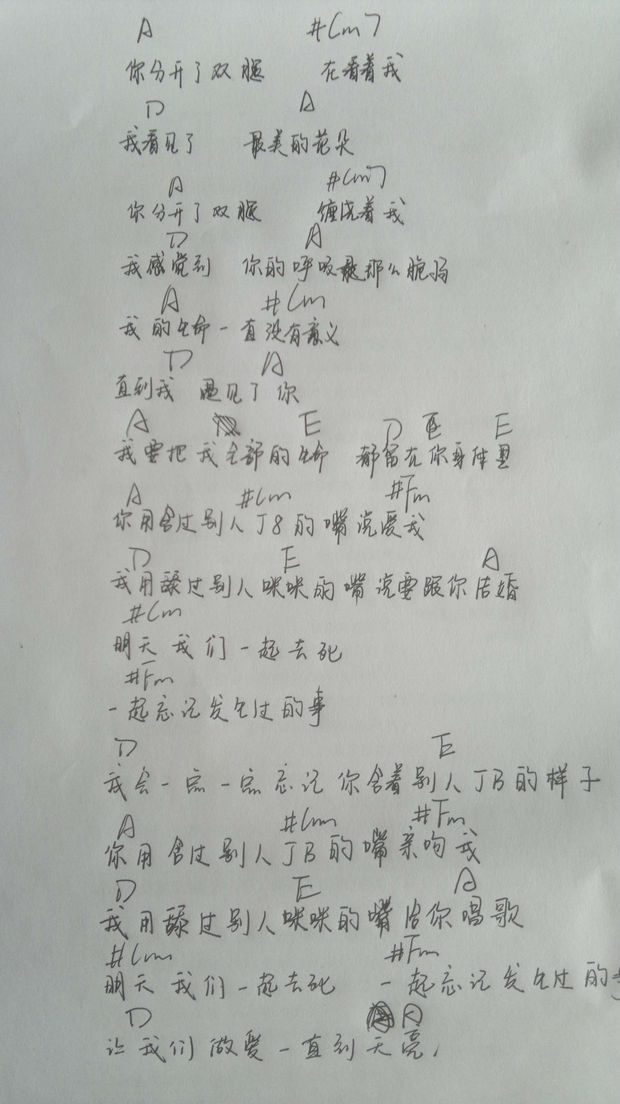 A #Cm7
你分开了双腿 在看着我
D A
我看见了 最美的花朵
A #Cm7
你分开了双腿 缠绕着我
D A
我感觉到 你的呼吸是那么脆弱
A #Cm
我的生命一直没有意义
D A
直到我 遇见了你
A E D E E
我要把我全部的生命 都留在你身体里
A #Cm #Fm
你用含过别人J8的嘴说爱我
D E A
我用舔过别人咪咪的嘴说要跟你结婚
#Cm
明天我们一起去死
#Fm
一起忘记发生过的事
D E
我会一点一点忘记你含着别人JB的样子
A #Cm #Fm
你用含过别人JB的嘴亲吻我
D E A
我用舔过别人咪咪的嘴给你唱歌
#Cm #Fm
明天我们一起去死 一起忘记发生过的
D A
让我们做爱一直到天亮,